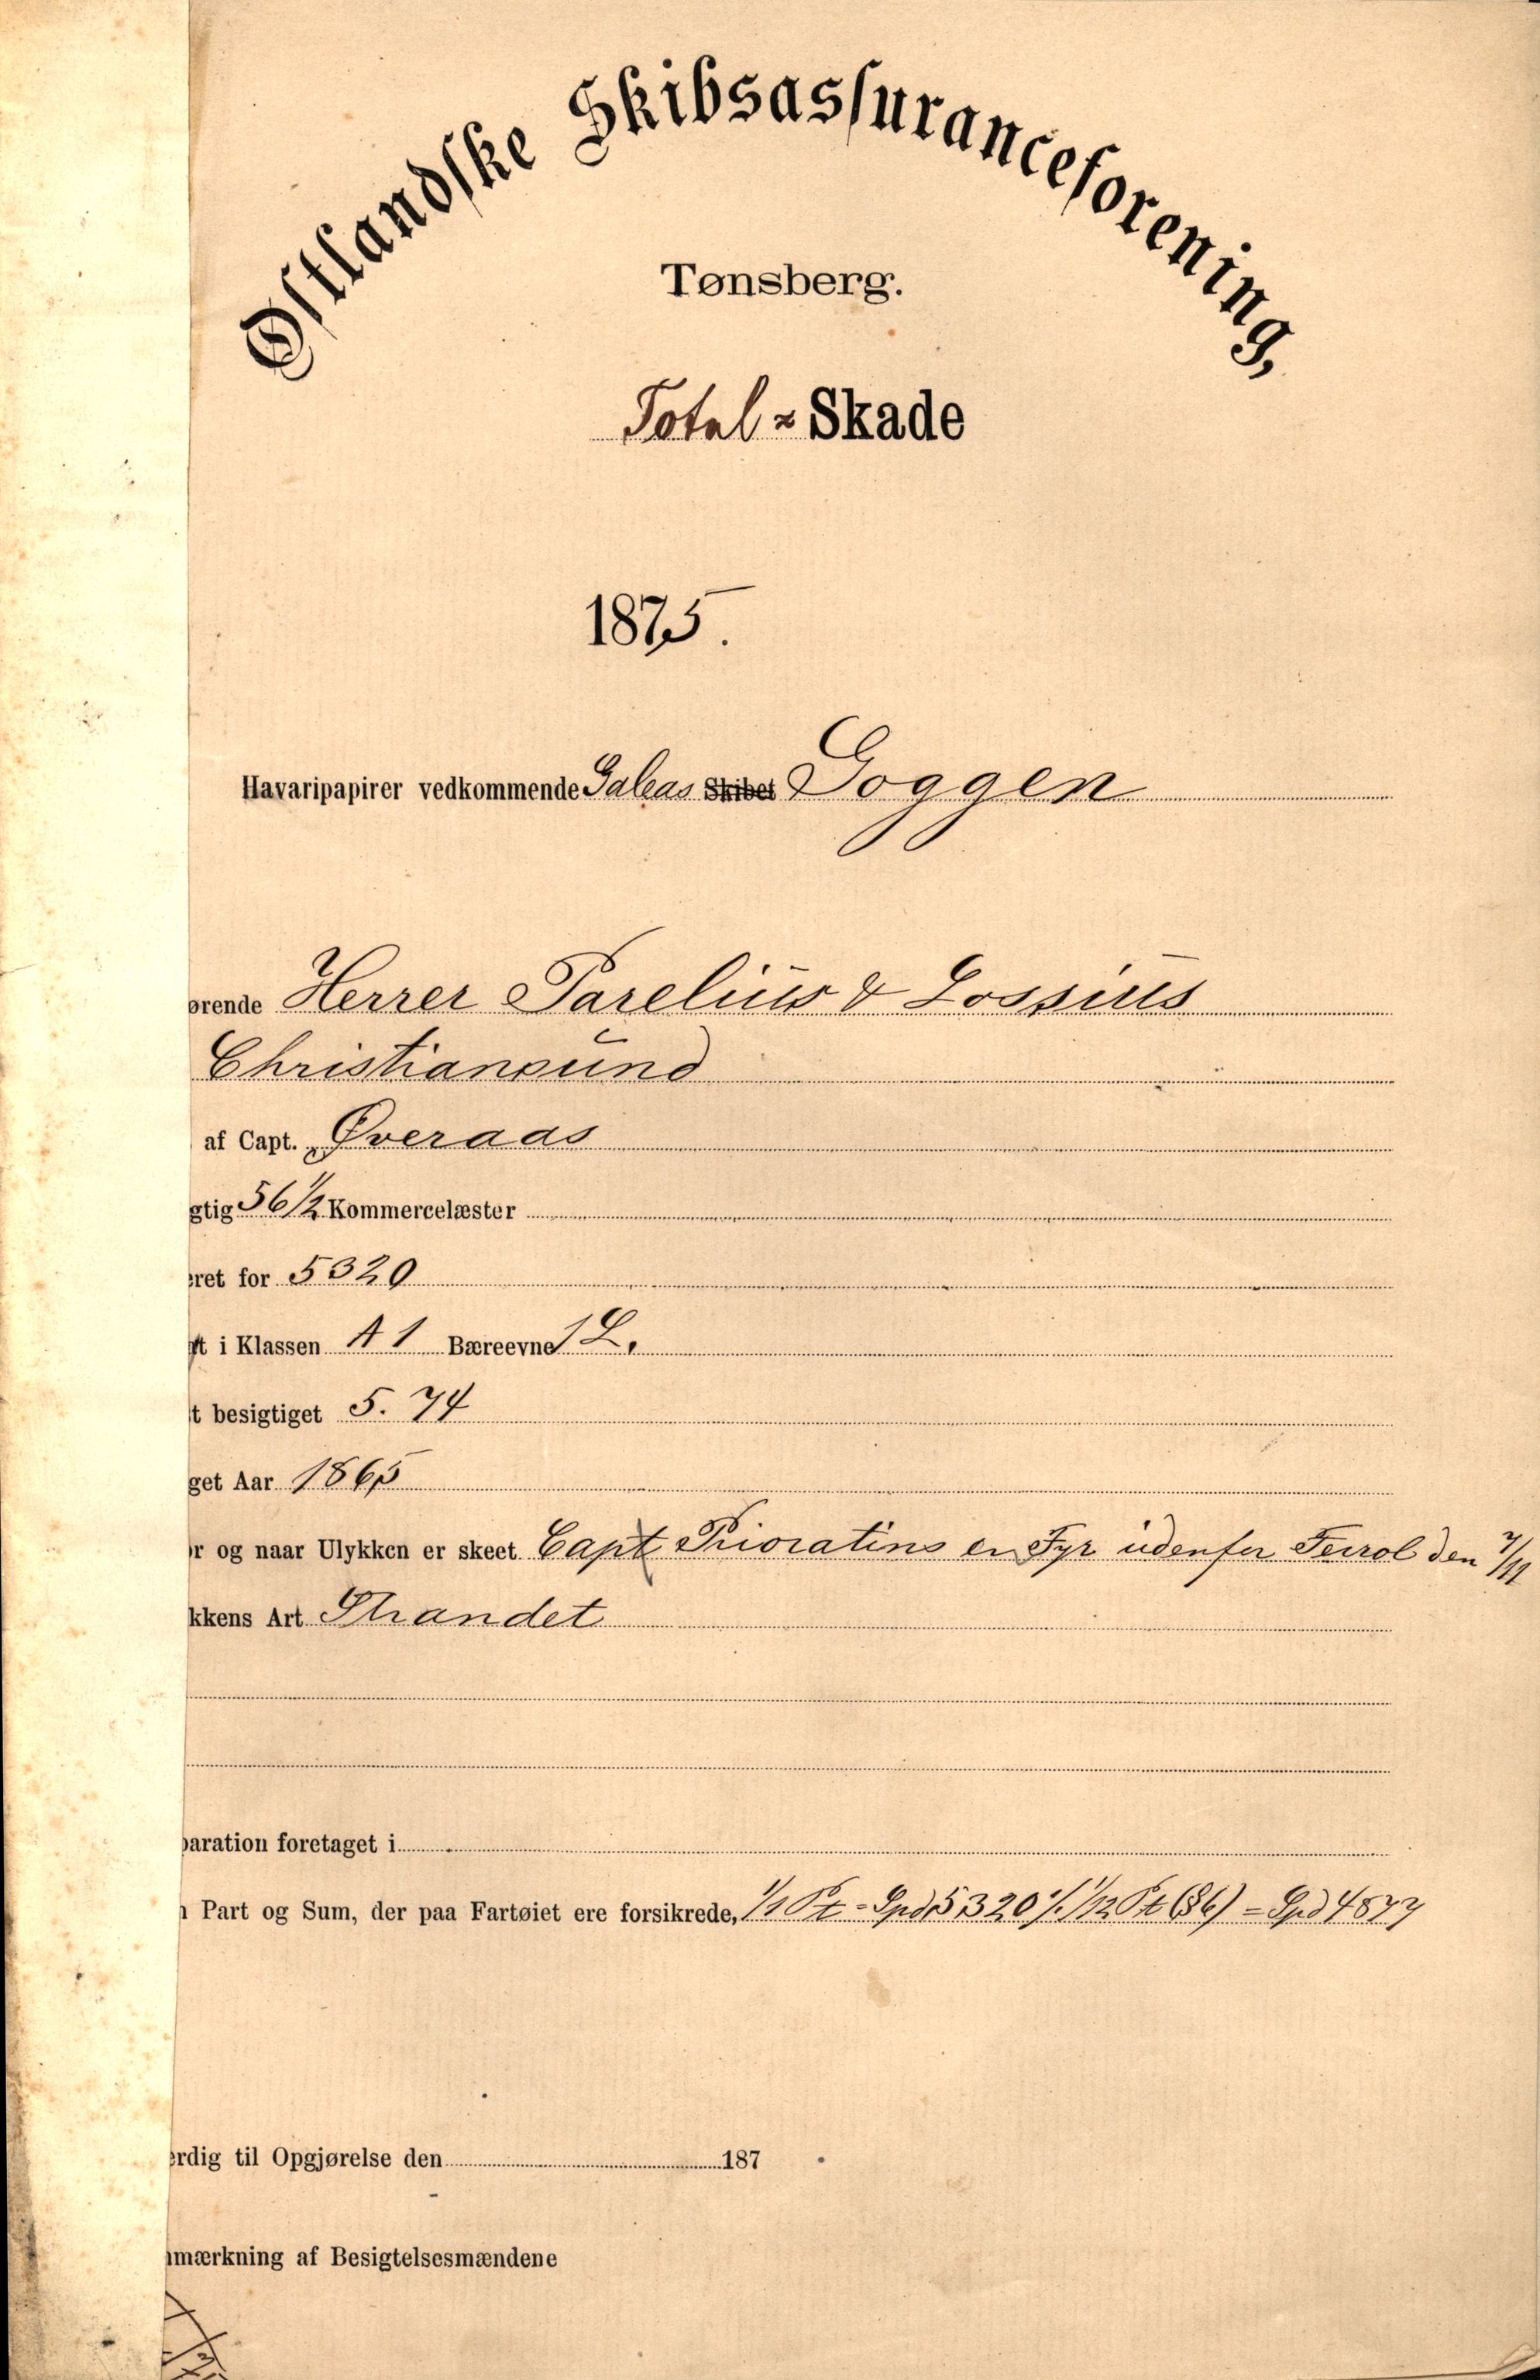 Østlandske Skibsassuranceforening,
Tønsberg.
Total = Skade
1875.
Havaripapirer vedkommende Galeas Skibet Goggen
ørende Herrer Parelius & Lossius
Christiansund
af Capt. Øveraas
gtig 56 1/2 Kommercelæster
ret for 5320
t i Klassen A 1 Bæreevne 1 L.
t besigtiget 5. 74
get Aar 1865
r og naar Ulykken er skeet Capt Prioratins en Fyr udenfor Ferrol den 7/11
kkens Art Strandet
paration foretaget i
Part og Sum, der paa Fartøiet ere forsikrede, 1/1 Pt = Spd 5320 ./. 1/12 Pt (86) = Spd 4877
erdig til Opgjørelse den 187
mærkning af Besigtelsesmændene